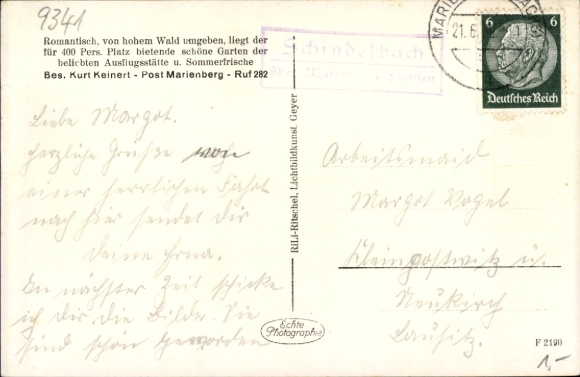 9341
Romantisch, von hohem Wald umgeben, liegt der
für 400 Pers. Platz bietende schöne Garten der
beliebten Ausflugsstätte u. Sommerfrische
Bes. Kurt Keinert - Post Marienberg - Ruf 282
Liebe Margot.
herzliche Grüße von
einer herrlichen Fahrt
nach hier sendet dir
deine Erna.
In nächster Zeit schicke
ich dir die Bilder. Sie
sind schön geworden
RiLi-Ritschel, Lichtbildkunst, Geyer
Echte
Photographie
Schindelbach
über Marienberg
MARIE
21.6.
6 6
Deutsches Reich
Arbeitsmaid
Margot Vogel
Kleinpostwitz ü.
Neukirch
Lausitz.
F 2190
1,-